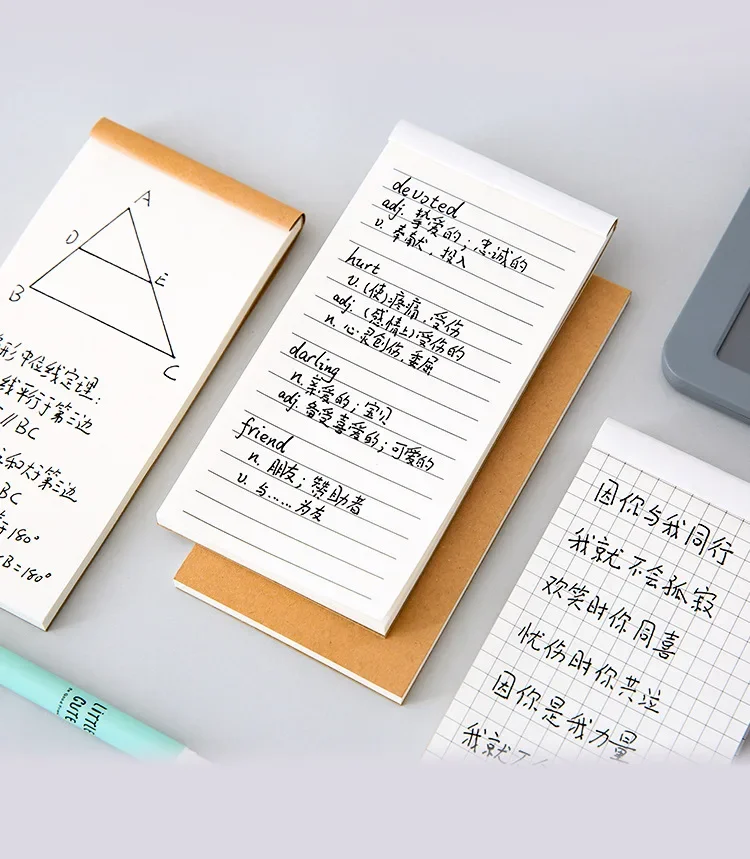 A
D
E
B
C
形中位线定理:
线平行于第三边
// BC
和大于第三边
BC
180°
B=180°
devoted
adj. 挚爱的; 忠诚的
v. 奉献, 投入
hurt
v. (使)疼痛, 受伤
adj. (感情上)受伤的
n. 心灵创伤, 委屈
darling
n. 亲爱的; 宝贝
adj. 备受喜爱的; 可爱的
friend
n. 朋友; 赞助者
v. 与……为友
因你与我同行
我就不会孤寂
欢笑时你同喜
忧伤时你共泣
因你是我力量
我就不
LITTLE
CUTE